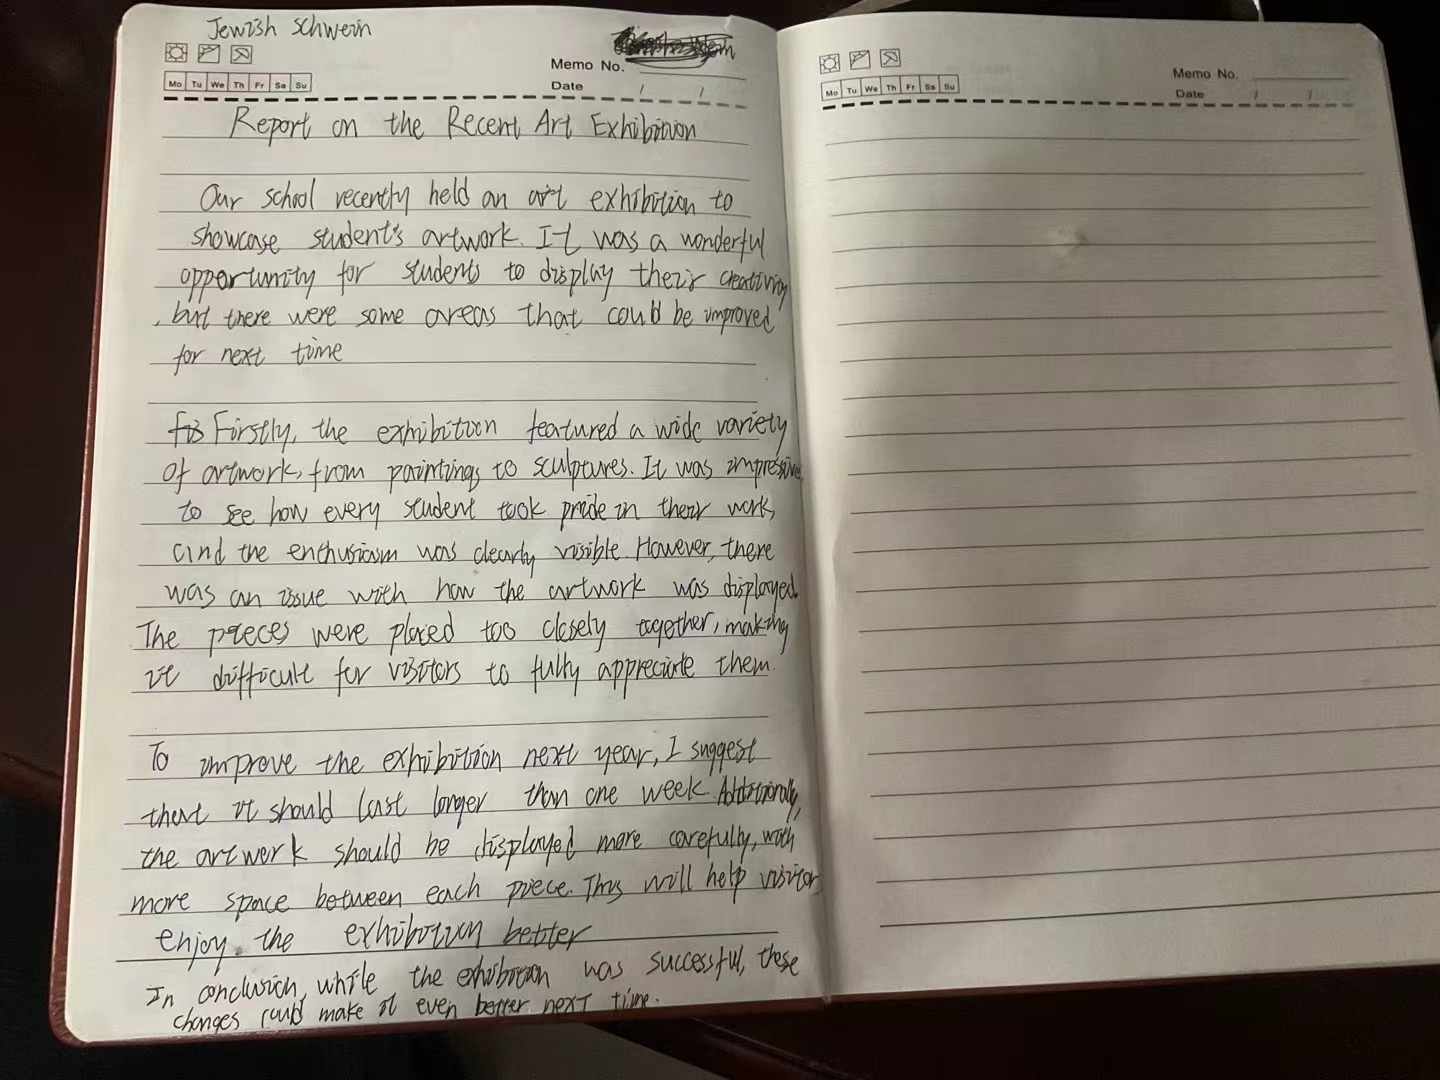 Jewish schwein
Memo No.
Mo Tu We Th Fr Sa Su
Date / /
Report on the Recent Art Exhibition
Our school recently held an art exhibition to
showcase student's artwork. It was a wonderful
opportunity for students to display their creativity
, but there were some areas that could be improved
for next time
Firstly, the exhibition featured a wide variety
of artwork, from paintings to sculptures. It was impressive
to see how every student took pride in their work,
and the enthusiasm was clearly visible. However, there
was an issue with how the artwork was displayed.
The pieces were placed too closely together, making
it difficult for visitors to fully appreciate them.
To improve the exhibition next year, I suggest
that it should last longer than one week. Additionally,
the artwork should be displayed more carefully, with
more space between each piece. This will help visitor
enjoy the exhibition better
In conclusion, while the exhibition was successful, these
changes could make it even better next time.
Memo No.
Mo Tu We Th Fr Sa Su
Date / /